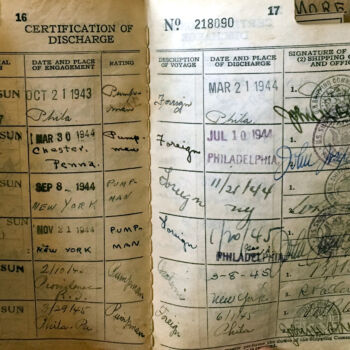 16
CERTIFICATION OF
DISCHARGE
DATE AND PLACE
OF ENGAGEMENT
RATING
SUN
OCT 21 1943
Phila
Pump-
man
MAR 30 1944
Chester,
Penna.
Pump-
man
SUN
SEP 8 1944
NEW YORK
PUMP-
MAN
SUN
NOV 21 1944
NEW YORK
PUMP-
MAN
SUN
2/10/45
Providence
R.I.
Pumpman
SUN
3/29/45
Phila. Pa
Pumpman
Nº 218090
17
DESCRIPTION
OF VOYAGE
DATE AND PLACE
OF DISCHARGE
SIGNATURE OF
(2) SHIPPING C
AND OFFI
Foreign
MAR 21 1944
Phila
1.
Foreign
JUL 10 1944
PHILADELPHIA
1.
Foreign
11/21/44
NY
1.
Foreign
1/20/45
PHILADELPHIA
1.
3-8-45
New York
1.
Foreign
6/1/45
Phila
1.